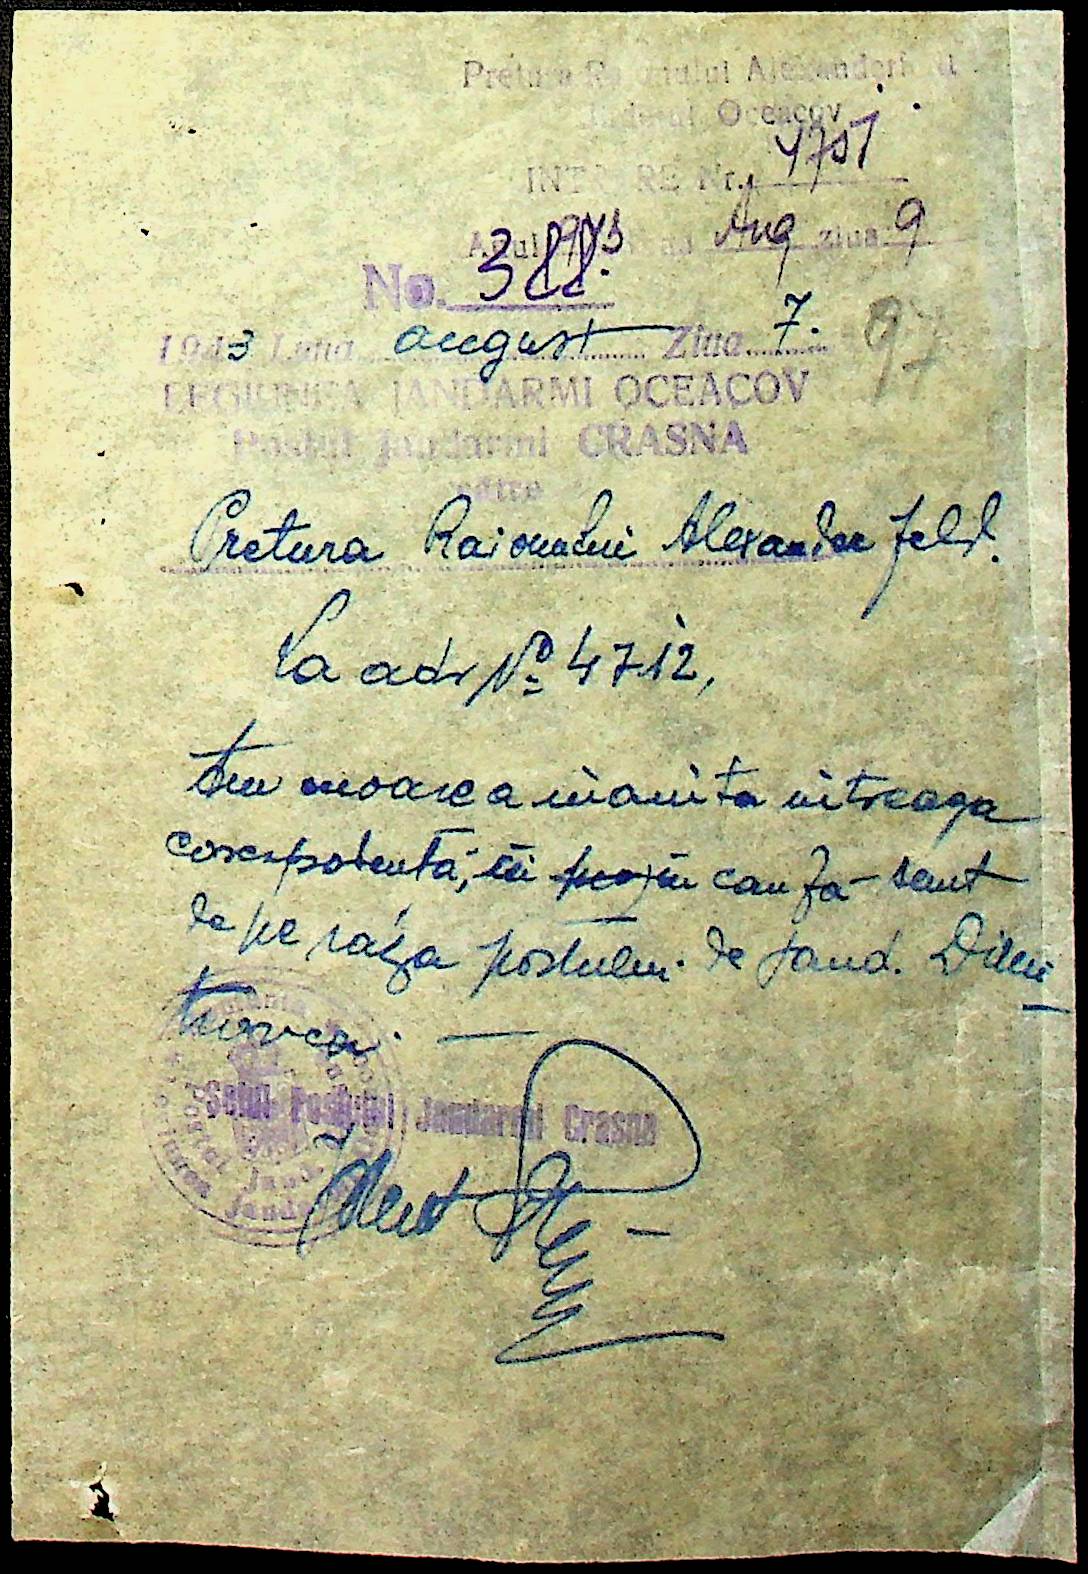 Pretura Raionului Alexanderfeld
Judetul Oceacov
INTRARE Nr. 4751
Anul 1943 Luna Aug ziua 9
No. 388.
1943 Luna august Ziua 7.
97
LEGIUNEA JANDARMI OCEACOV
Postul Jandarmi CRASNA
către
Pretura Raionului Alexanderfeld.
La adr No 4712,
Am onoarea inainta intreaga
corespodenta, in cauză sunt
de pe raza postului de jand. Dimi
trovca.
Seful Postului Jandarmi Crasna